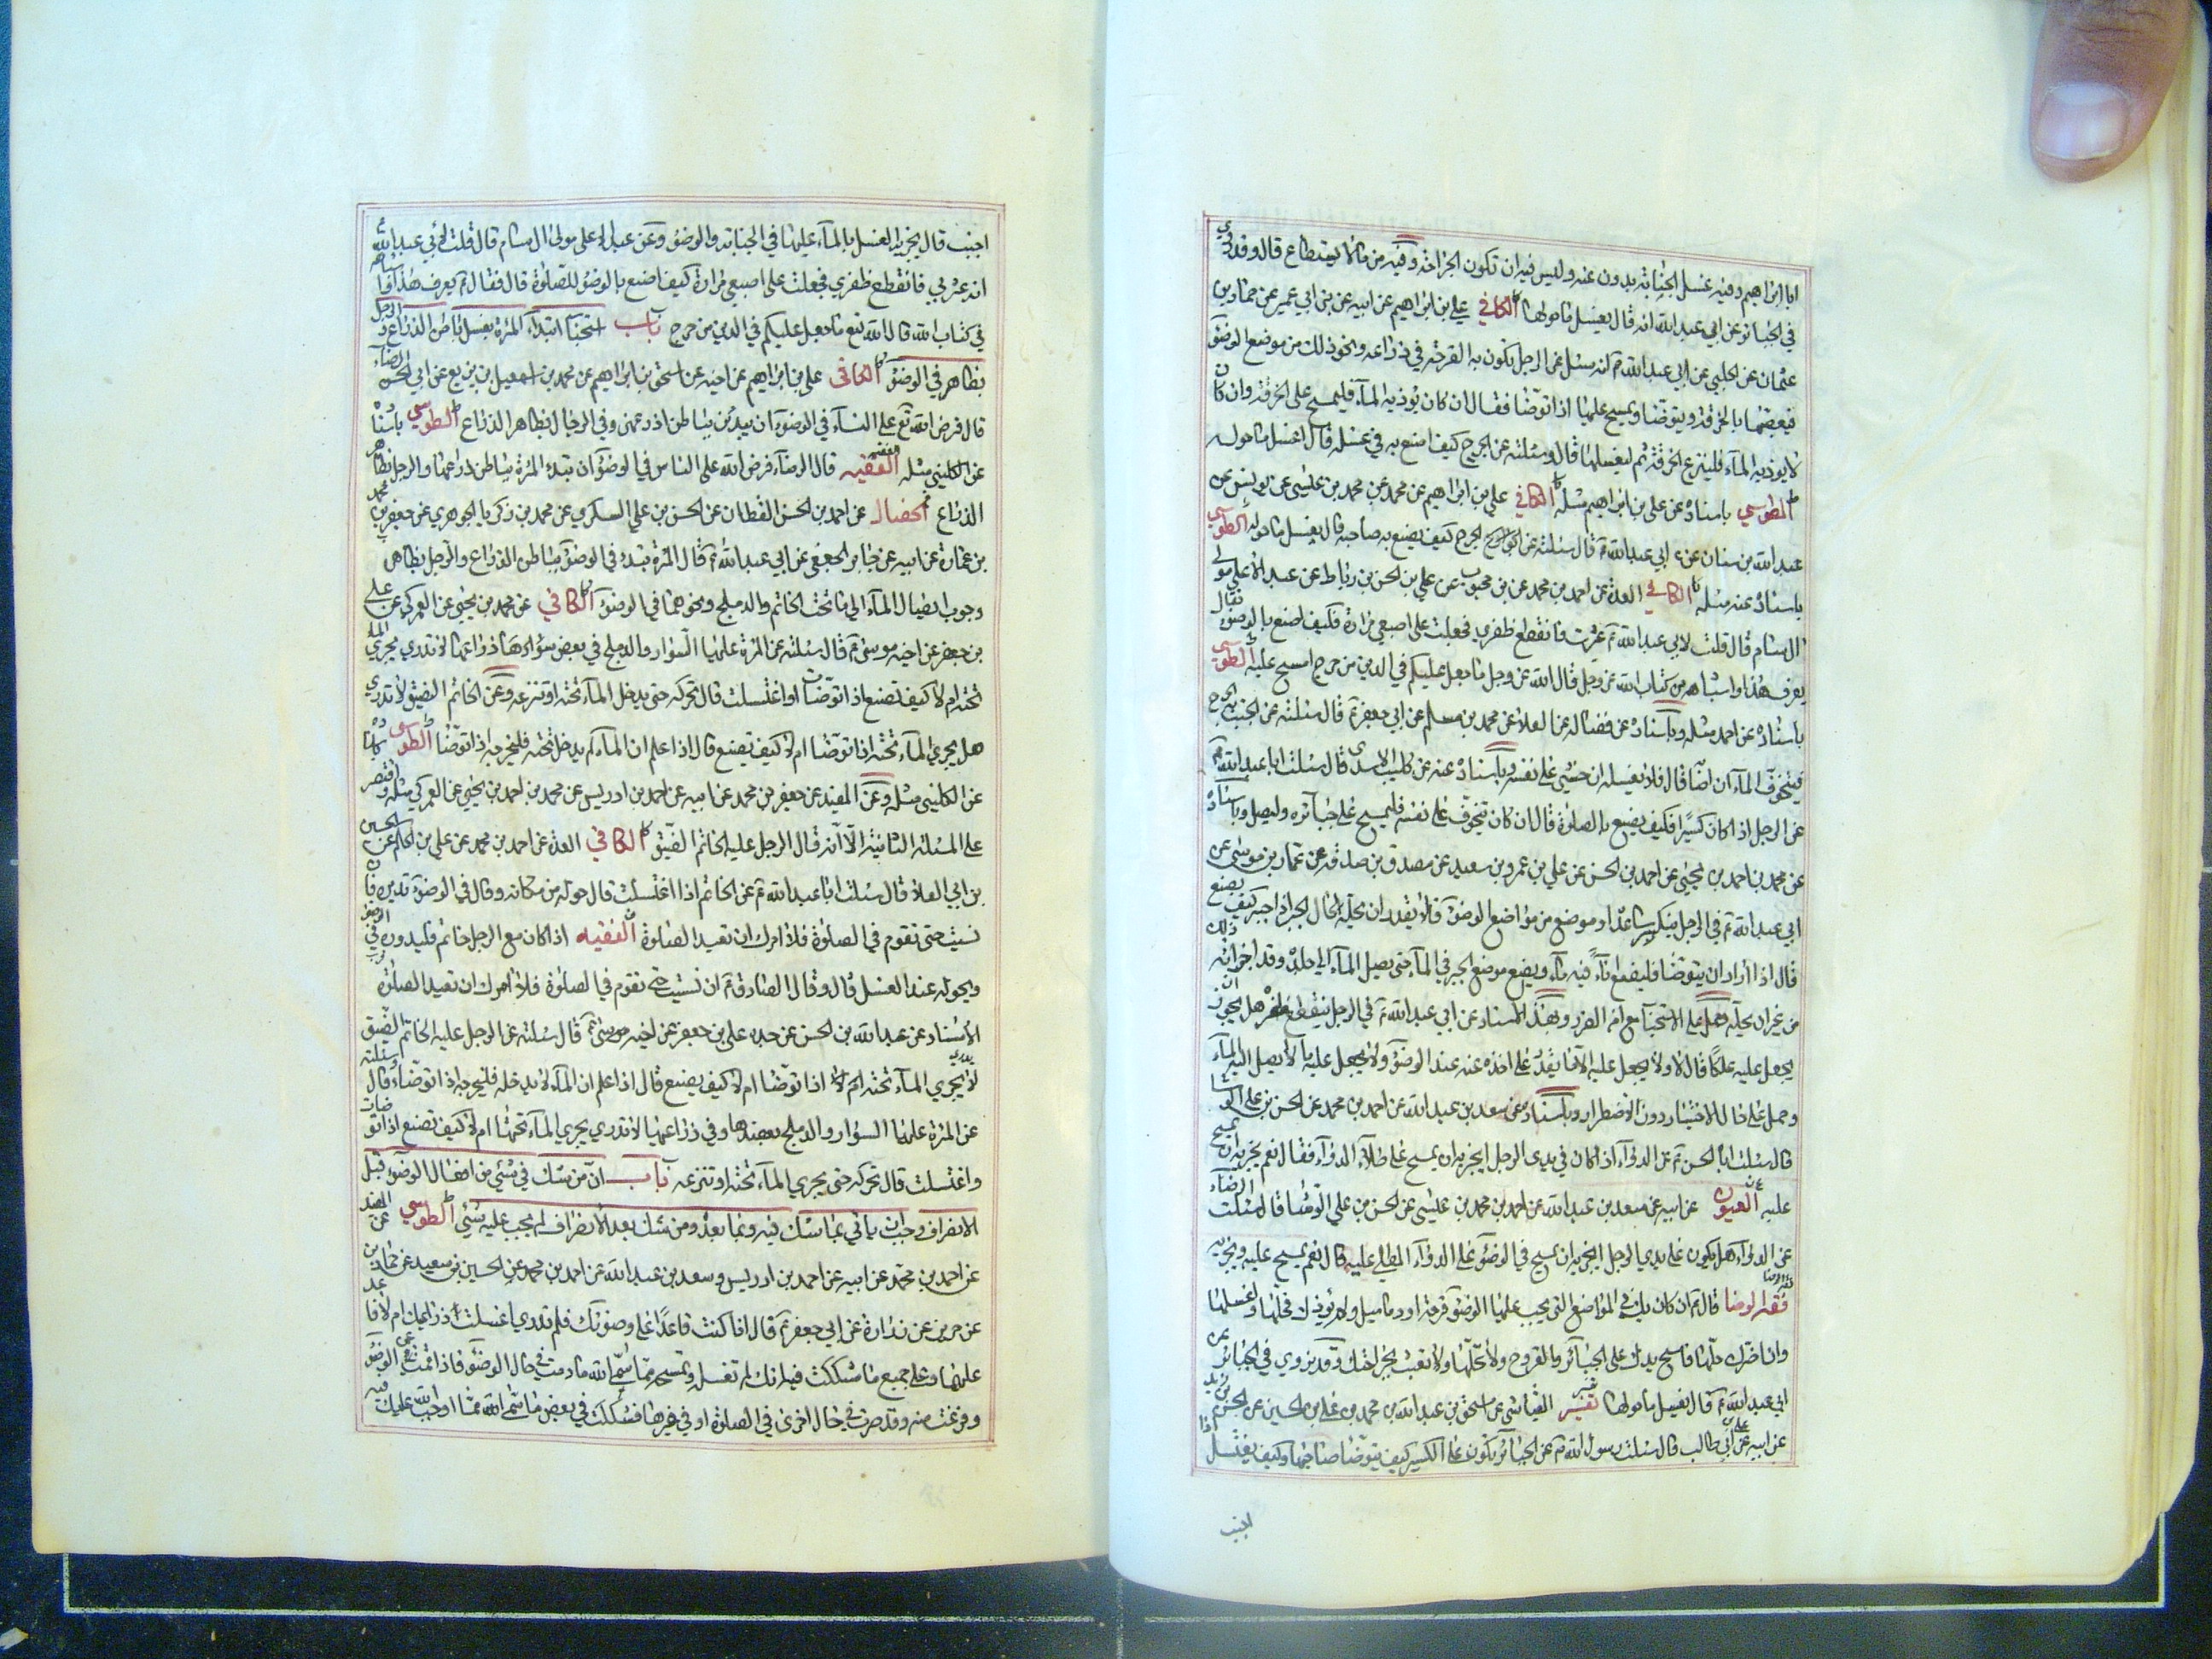 ابا ابراهيم وفيه غسل الجنابة بدون عنه وليس فيه ان تكون الجراحة وفيه من ما لا يستطاع قال وقد روي
في الجبائر عن ابي عبدالله انه قال يغسل ما حولها الكافي علي بن ابراهيم عن ابيه عن بن ابي عمير عن حماد بن
عثمان عن الحلبي عن ابي عبدالله ع انه سئل عن الرجل تكون به القرحة في ذراعه ونحو ذلك من موضع الوضوء
فيعصبها بالخرقة ويتوضا ويمسح عليها اذا توضا فقال ان كان يؤذيه المآء فليمسح على الخرقة وان كان
لا يوذيه المآء فلينزع الخرقة ثم ليغسلها قال وسئلته عن الجرح كيف اصنع به في غسله قال اغسل ما حوله
الطوسي باسناده عن علي بن ابراهيم مثله الكافي علي بن ابراهيم عن محمد بن عيسى عن يونس عن
عبدالله بن سنان عن ابي عبدالله ع قال سئلته عن الجرح كيف يصنع به صاحبه قال يغسل ما حوله الطوسي
باسناده عنه مثله الكافي العدة عن احمد بن محمد عن بن محبوب عن علي بن الحسن بن رباط عن عبد الاعلى مولى
ال سام قال قلت لابي عبدالله ع عثرت فانقطع ظفري فجعلت على اصبعي مرارة فكيف اصنع بالوضوء فقال
يعرف هذا واشباهه من كتاب الله عز وجل قال الله عز وجل ما جعل عليكم في الدين من حرج امسح عليه الطوسي
باسناده عن احمد مثله وباسناده عن فضاله عن العلا عن محمد بن مسلم عن ابي جعفر ع قال سئلته عن الجنب به الجرح
فيتخوف المآء ان اصابه قال فلا يغسله ان خشي على نفسه وباسناده عنه عن كليب الاسدي قال سئلت ابا عبدالله ع
عن الرجل اذا كان كسيرا فكيف يصنع بالصلوة قال ان كان يتخوف على نفسه فليمسح على جبائره وليصل وباسناده
عن محمد بن احمد بن يحيى عن احمد بن الحسن عن علي بن عمرو بن سعيد عن مصدق بن صدقه عن عمار بن موسى عن
ابي عبدالله ع في الرجل ينكسر ساعده او موضع من مواضع الوضوء فلا يقدر ان يحله لحال الجبر اذا جبر كيف يصنع
قال اذا اراد ان يتوضا فليضع انآء فيه مآء ويضع موضع الجبر في المآء حتى يصل المآء الى جلده وقد اجزائه ذلك
من غير ان يحله حمل على الاستحباب مع امن الضرر وبهذا الاسناد عن ابي عبدالله ع في الرجل ينقطع ظفره هل يجوز ان
يجعل عليه علكا قال لا ولا يجعل عليه الا ما يقدر على اخذه عنه عند الوضوء ولا يجعل عليه ما لا يصل اليه المآء
وحمل على حال الاختيار دون الاضطرار وباسناده عن سعد بن عبدالله عن احمد بن محمد عن الحسن بن علي الوشا
قال سئلت ابا الحسن ع عن الدوآء اذا كان في يدي الرجل ايجزيه ان يمسح على طلآء الدوآء فقال نعم يجزيه ان يمسح
عليه العيون عن ابيه عن سعد بن عبدالله عن احمد بن محمد بن عيسى عن الحسن بن علي الوشا قال سئلت الرضاء
عن الدوآء هل يكون على يدي الرجل ايجزيه ان يمسح في الوضوء على الدوآء المطلي عليه قال نعم يمسح عليه ويجزيه
فقه الرضا قال ع ان كان بك في المواضع التي يجب عليها الوضوء قرحة او دماميل ولم يؤذك فحلها واغسلها
وان اضرك حلها فامسح يدك على الجبائر والقروح ولا تحلها ولا تعبث بجراحتك وقد نروي في الجبائر عن
ابي عبدالله ع قال يغسل ما حولها تفسير العياشي عن اسحق بن عبدالله بن محمد بن علي بن الحسين عن الحسن بن زيد
عن ابيه عن علي بن ابي طالب قال سئلت رسول الله ص عن الجبائر تكون على الكسير كيف يتوضا صاحبها وكيف يغتسل اذا
اجنب
اجنب قال يجزيه الغسل بالمآء عليها في الجنابة والوضوء وعن عبد الاعلى مولى ال سام قال قلت لابي عبدالله ع
انه عثر بي فانقطع ظفري فجعلت على اصبعي مرارة كيف اصنع بالوضوء للصلوة قال فقال ع يعرف هذا واشباهه
في كتاب الله قال الله تع ما جعل عليكم في الدين من حرج باب استحباب ابتداء المرئة بغسل باطن الذراع والرجل
بظاهره في الوضوء الكافي علي بن ابراهيم عن اخيه عن اسحق بن ابراهيم عن محمد بن اسمعيل بن بزيع عن ابي الحسن الرضآء
قال فرض الله تع على النسآء في الوضوء ان يبدئن بباطن اذرعهن وفي الرجال بظاهر الذراع الطوسي باسناده
عن الكليني مثله الفقيه قال الرضاء فرض الله على الناس في الوضوء ان تبدء المرئة بباطن ذراعها والرجل بظاهر
الذراع الخصال عن احمد بن الحسن القطان عن الحسن بن علي السكري عن محمد بن زكريا الجوهري عن جعفر بن محمد
بن عمارة عن ابيه عن جابر الجعفي عن ابي عبدالله ع قال المرئة تبدء في الوضوء بباطن الذراع والرجل بظاهره
وجوب ايصال المآء الى ما تحت الخاتم والدملج ونحوهما في الوضوء الكافي عن محمد بن يحيى عن العمركي عن علي
بن جعفر عن اخيه موسى ع قال سئلته عن المرئة عليها السوار والدملج في بعض ذراعها لا تدري يجري المآء
تحته ام لا كيف تصنع اذا توضات او اغتسلت قال تحركه حتى يدخل المآء تحته او تنزعه وعن الخاتم الضيق لا تدري
هل يجري المآء تحته اذا توضا ام لا كيف تصنع قال اذا علم ان المآء لم يدخل تحته فليخرجه اذا توضا الطوسي باسناده
عن الكليني مثله وعن المفيد عن جعفر بن محمد عن ابيه عن احمد بن ادريس عن محمد بن احمد بن يحيى عن العمركي مثله واقتصر
على المسئلة الثانية الا انه قال الرجل عليه الخاتم الضيق الكافي العدة عن احمد بن محمد عن علي بن الحكم عن الحسين
بن ابي العلا قال سئلت ابا عبدالله ع عن الخاتم اذا اغتسلت قال حوله من مكانه وقال في الوضوء تديره فان
نسيت حتى تقوم في الصلوة فلا امرك ان تعيد الصلوة الفقيه اذا كان مع الرجل خاتم فليدوره في الوضوء
ويحوله عند الغسل قال وقال الصادق ع ان نسيت حتى تقوم في الصلوة فلا امرك ان تعيد الصلوة
الاسناد عن عبدالله بن الحسن عن جده علي بن جعفر عن اخيه موسى ع قال سئلته عن الرجل عليه الخاتم الضيق
لا يدري يجري المآء تحته ام لا اذا توضا ام لا كيف يصنع قال اذا علم ان المآء لا يدخله فليخرجه اذا توضا وقال وسئلته
عن المرئة عليها السوار والدملج بعضدها وفي ذراعها لا تدري يجري المآء تحتها ام لا كيف تصنع اذا توضات
واغتسلت قال تحركه حتى يجري المآء تحته او تنزعه باب ان من شك في شئ من افعال الوضوء قبل
الانصراف وجب ان ياتي بما شك فيه وبما بعده ومن شك بعد الانصراف لم يجب عليه شئ الطوسي عن المفيد
عن احمد بن محمد عن ابيه عن احمد بن ادريس وسعد بن عبدالله عن احمد بن محمد عن الحسين بن سعيد عن حماد بن
عن حريز عن زرارة عن ابي جعفر ع قال اذا كنت قاعدا على وضوئك فلم تدري اغسلت ذراعيك ام لا فاعد
عليهما وعلى جميع ما شككت فيه انك لم تغسله وتمسحه مما سمى الله ما دمت في حال الوضوء فاذا قمت عن الوضوء
وفرغت منه وقد صرت في حال اخرى في الصلوة او في غيرها فشككت في بعض ما سمى الله مما اوجب الله عليك فيه